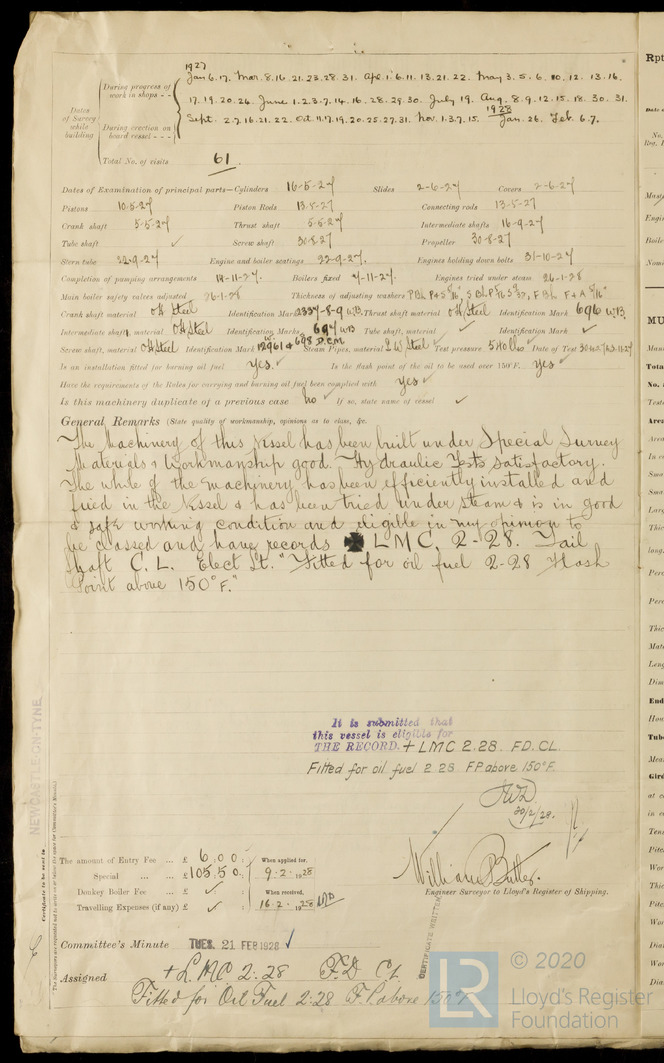 1927
Jan 6. 17. Mar. 8. 16. 21. 23. 28. 31. Apl. 1. 6. 11. 13. 21. 22. May 3. 5. 6. 10. 12. 13. 16.
During progress of work in shops - -
17. 19. 20. 26. June 1. 2. 3. 7. 14. 16. 28. 29. 30. July 19. Aug. 8. 9. 12. 15. 18. 30. 31.
Dates of Survey while building
1928
Sept. 2. 7. 16. 21. 22. Oct. 11. 17. 19. 20. 25. 27. 31. Nov. 1. 3. 7. 15. Jan. 26. Feb. 6. 7.
During erection on board vessel - - -
Total No. of visits 61
Dates of Examination of principal parts—Cylinders 16-5-27 Slides 2-6-27 Covers 2-6-27
Pistons 10-5-27 Piston Rods 13-5-27 Connecting rods 13-5-27
Crank shaft 5-5-27 Thrust shaft 5-5-27 Intermediate shafts 16-9-27
Tube shaft ✓ Screw shaft 30-8-27 Propeller 30-8-27
Stern tube 22-9-27 Engine and boiler seatings 22-9-27. Engines holding down bolts 31-10-27
Completion of pumping arrangements 17-11-27. Boilers fixed 7-11-27. Engines tried under steam 26-1-28
Main boiler safety valves adjusted 26-1-28 Thickness of adjusting washers
Crank shaft material OH Steel Identification Mark 2337-8-9 WB Thrust shaft material OH Steel Identification Mark 696 WB
Intermediate shafts, material OH Steel Identification Marks 697 WB Tube shaft, material ✓ Identification Mark ✓
Screw shaft, material OH Steel Identification Mark 12961 & 698 D.C.M. Steam Pipes, material LW Steel Test pressure Date of Test
Is an installation fitted for burning oil fuel Yes. ✓ Is the flash point of the oil to be used over 150°F. Yes ✓
Have the requirements of the Rules for carrying and burning oil fuel been complied with Yes ✓
Is this machinery duplicate of a previous case No ✓ If so, state name of vessel ✓
General Remarks (State quality of workmanship, opinions as to class, &c.
The Machinery of this Vessel has been built under Special Survey
Materials & Workmanship good. Hydraulic Tests satisfactory.
The whole of the machinery has been efficiently installed and
fixed in the Vessel & has been tried under steam & is in good
& safe working condition and eligible in my opinion to
be classed and have records ✠ LMC. 2-28. Tail
Shaft C. L. Elect Lt. "Fitted for oil fuel 2-28 Flash
Point above 150°F."
It is submitted that
this vessel is eligible for
THE RECORD. + LMC 2.28. FD. CL.
Fitted for oil fuel 2.28 FP above 150°F.
20/2/28.
NEWCASTLE-ON-TYNE
Certificate to be sent to
The amount of Entry Fee ... £ 6.0.0 When applied for,
Special ... £ 105.5.0. 9.2.1928
Donkey Boiler Fee ... £ ✓ When received,
Travelling Expenses (if any) £ ✓ 16.2.1928
William Butler.
Engineer Surveyor to Lloyd's Register of Shipping.
CERTIFICATE WRITTEN
Committee's Minute TUES. 21 FEB 1928 ✓
Assigned + LMC 2.28 F.D CL.
Fitted for Oil Fuel 2.28 F.P. above 150°F
LR
© 2020
Lloyd's Register
Foundation
Rpt
MU